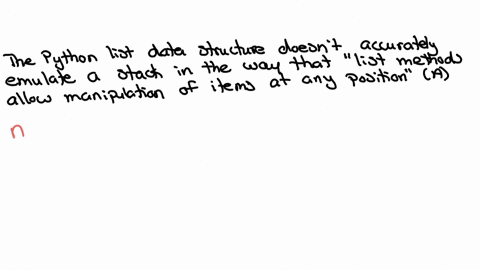 The Python list data structure doesn't accurately
emulate a stack in the way that "list methods
allow manipulation of items at any position" (A)
n